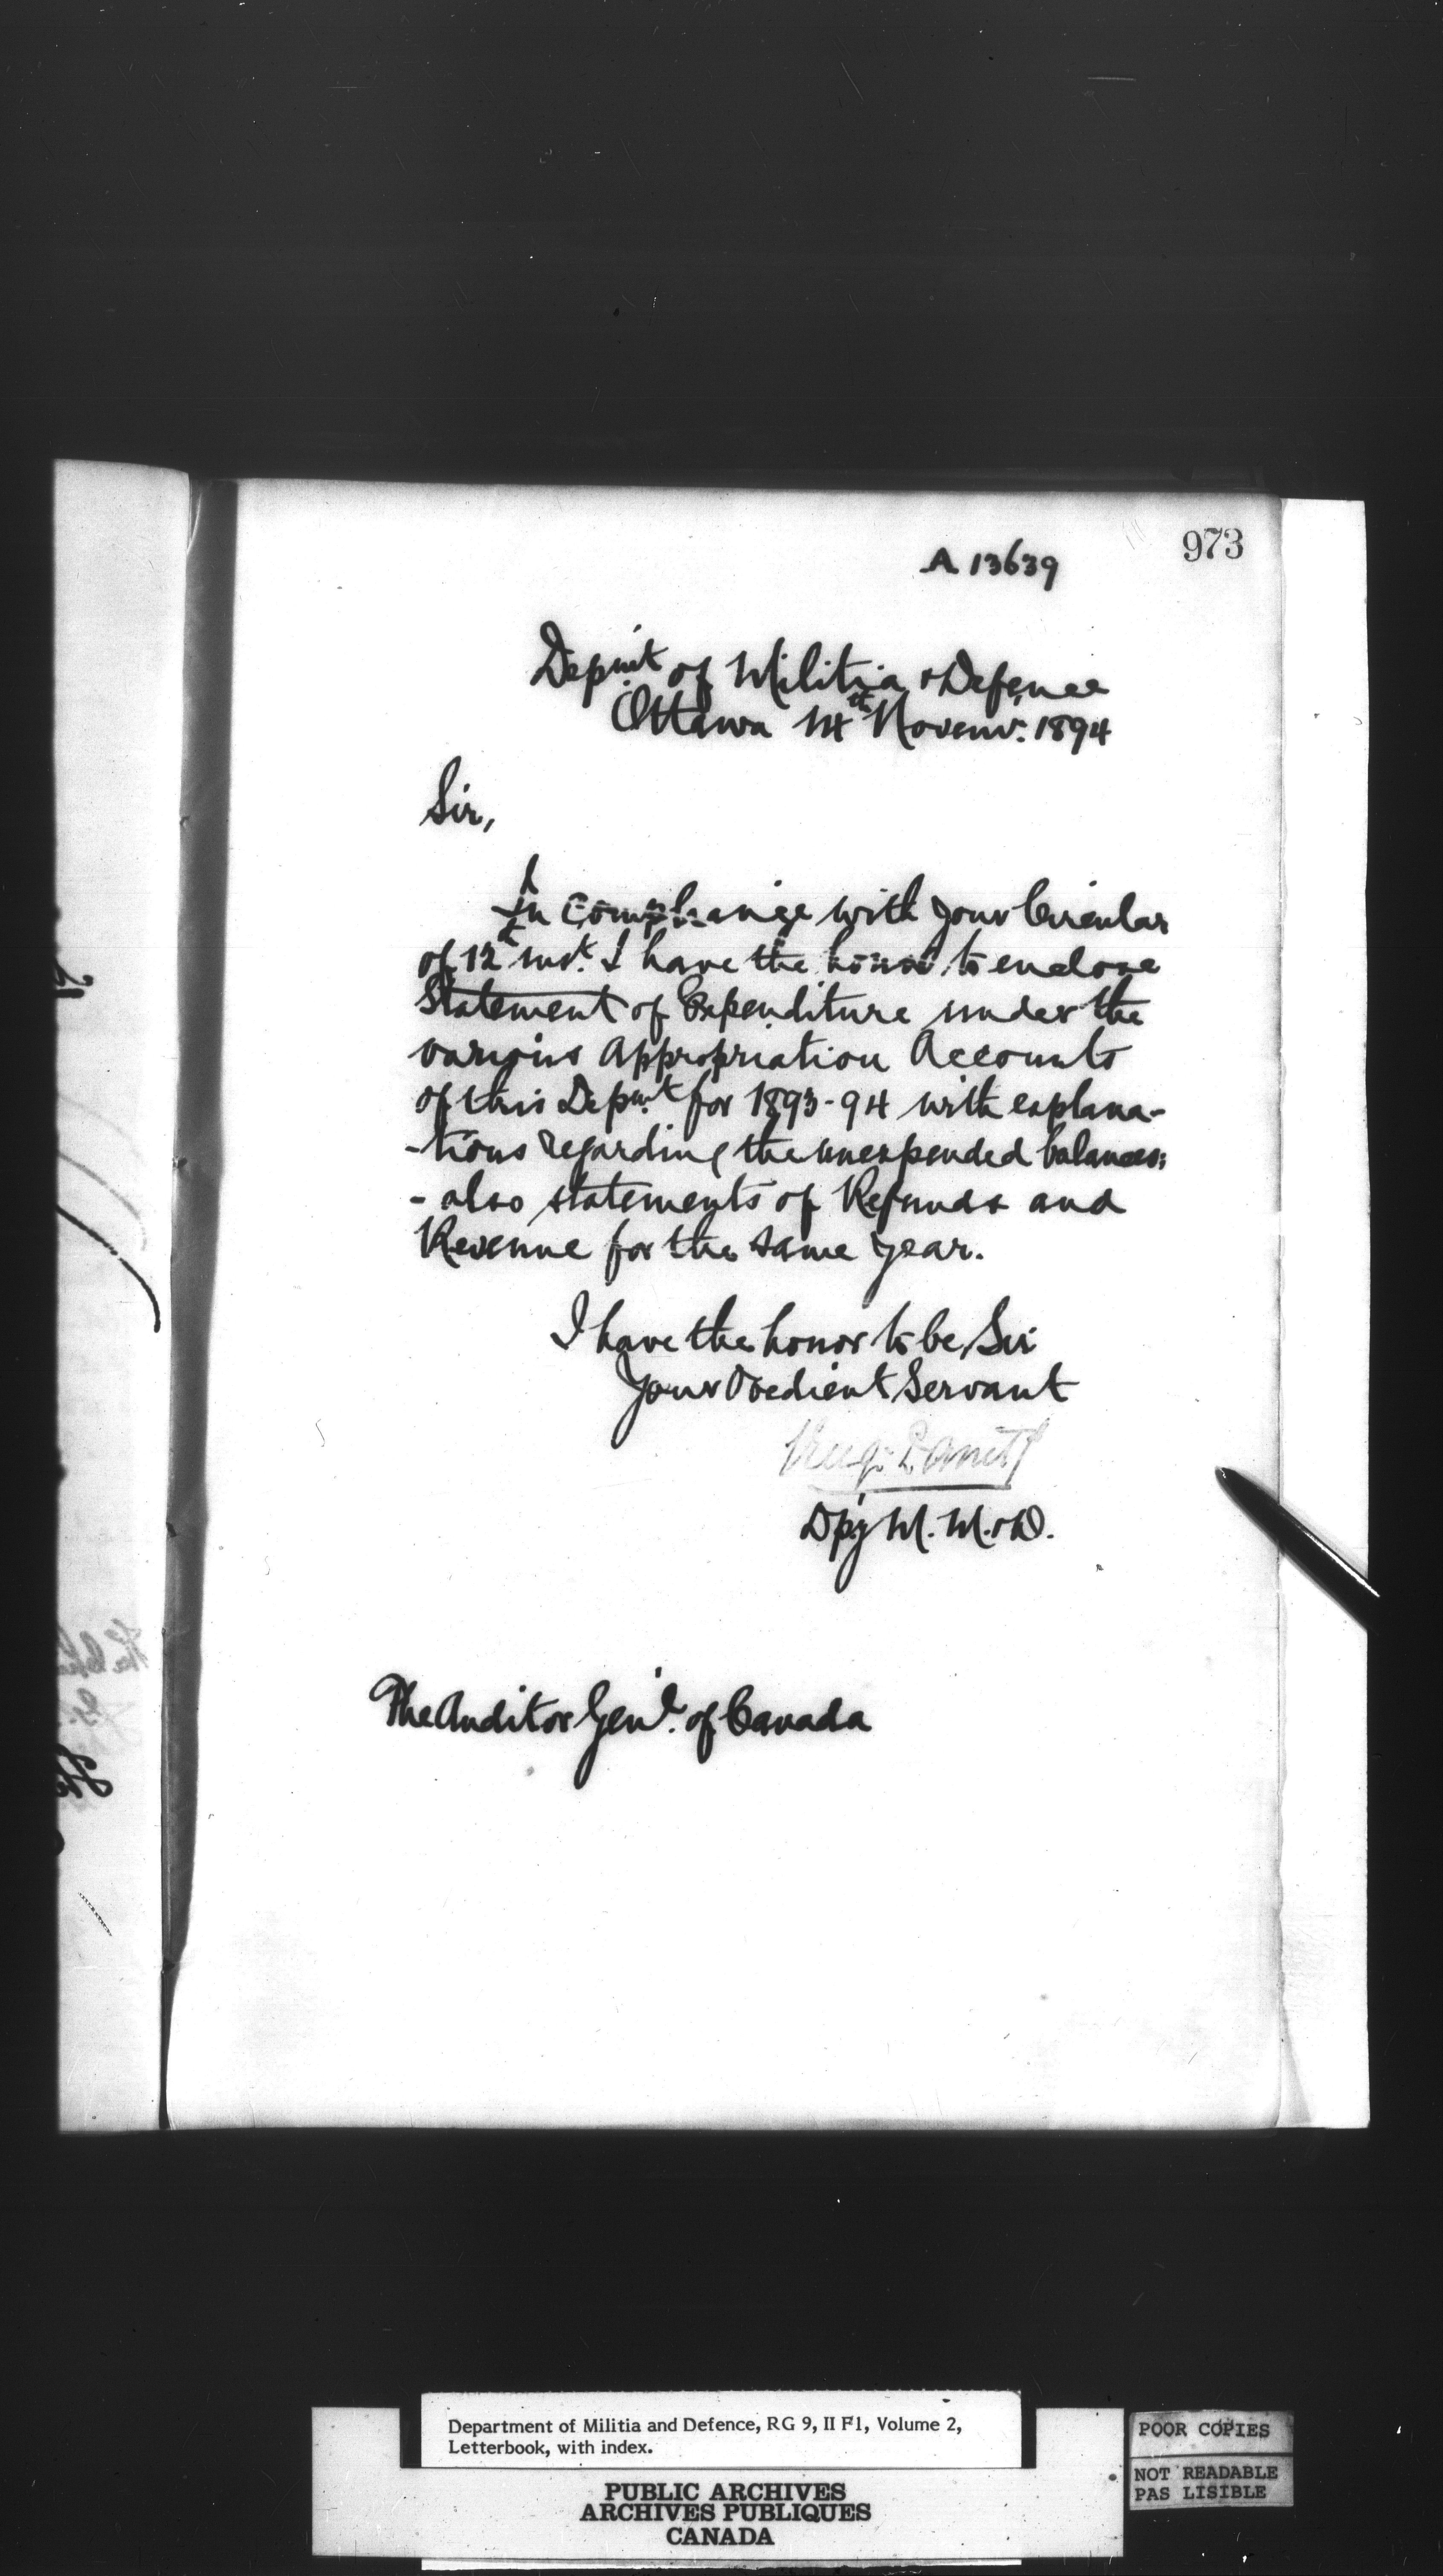 973
A 13639
Depm't of Militia & Defence
Ottawa 14th Novemr. 1894
Sir,
In compliance with your Circular
of 12th inst. I have the honor to enclose
Statement of Expenditure under the
various Appropriation Accounts
of this Depmt for 1893-94 with explana-
-tions regarding the unexpended balances;
- also statements of Refunds and
Revenue for the same year.
I have the honor to be, Sir
Your Obedient Servant
Dpy M. M. & D.
The Auditor Genl. of Canada
Department of Militia and Defence, RG 9, II F1, Volume 2,
Letterbook, with index.
PUBLIC ARCHIVES
ARCHIVES PUBLIQUES
CANADA
POOR COPIES
NOT READABLE
PAS LISIBLE